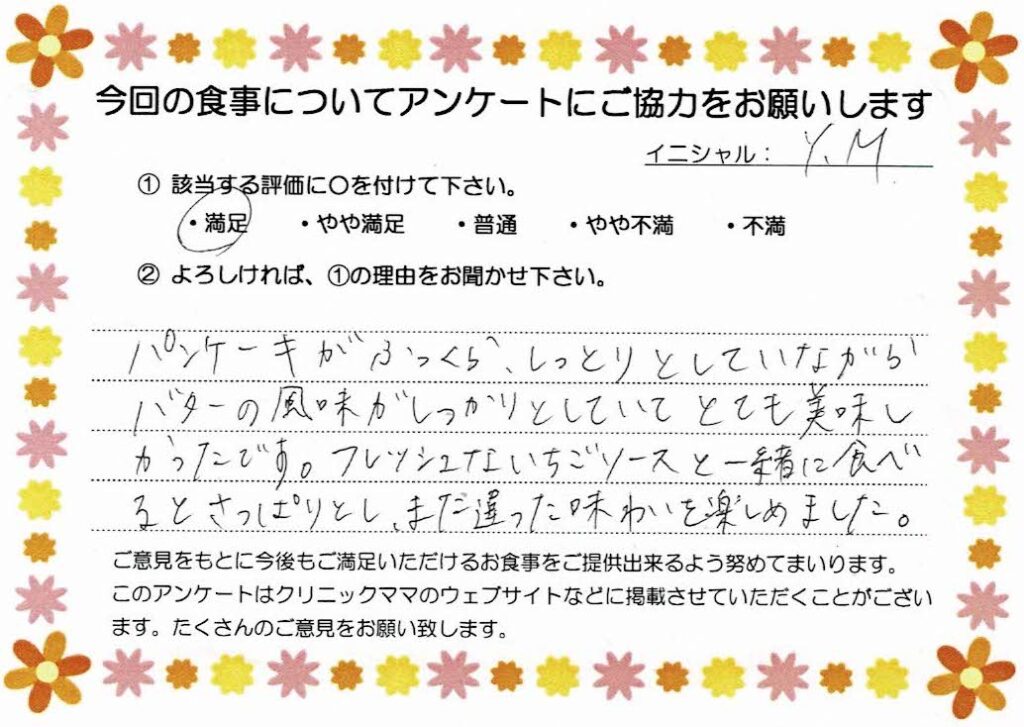 今回の食事についてアンケートにご協力をお願いします
イニシャル： Y.M
① 該当する評価に○を付けて下さい。
・満足 ・やや満足 ・普通 ・やや不満 ・不満
② よろしければ、①の理由をお聞かせ下さい。
パンケーキがふっくら、しっとりとしていながら
バターの風味がしっかりとしていてとても美味し
かったです。フレッシュないちごソースと一緒に食べ
るとさっぱりとし、まだ違った味わいを楽しめました。
ご意見をもとに今後もご満足いただけるお食事をご提供出来るよう努めてまいります。
このアンケートはクリニックママのウェブサイトなどに掲載させていただくことがござい
ます。たくさんのご意見をお願い致します。